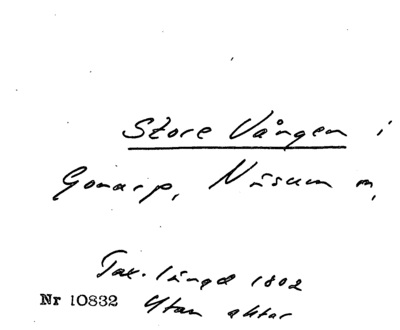 Store Vången i
Gonarp, Näsum m,
Tax. längd 1802
Nr 10832 Utan aktar